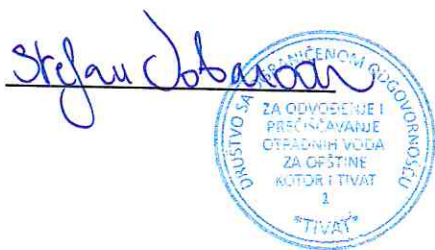 Stefan
DRUŠTVO SA OGRANIČENOM ODGOVORNOSĆU
ZA ODVOĐENJE I
PREČIŠĆAVANJE
OTPADNIH VODA
ZA OPŠTINE
KOTOR I TIVAT
2
"TIVAT"